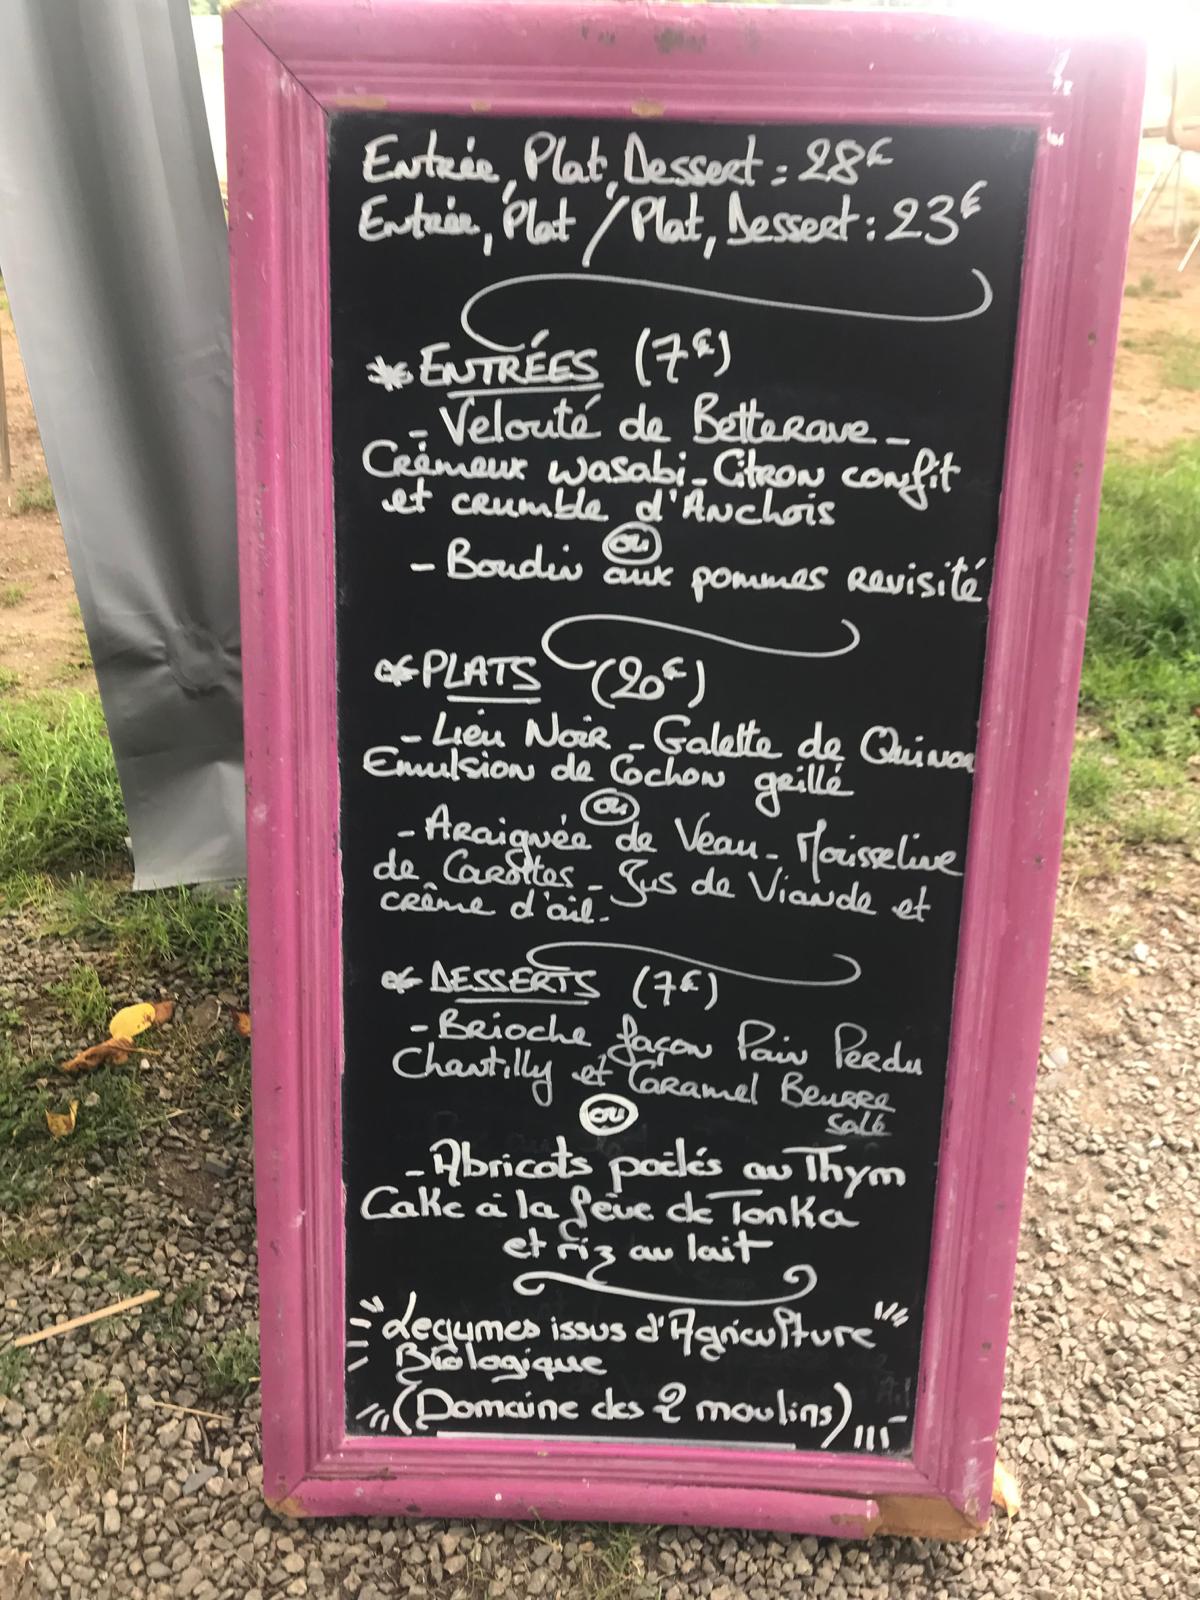 Entrée, Plat, Dessert : 28€
Entrée, Plat / Plat, Dessert : 23€
* ENTRÉES (7€)
- Velouté de Betterave -
Crèmeux wasabi - Citron confit
et crumble d'Anchois
ou
- Boudin aux pommes revisité
* PLATS (20€)
- Lieu Noir - Galette de Quinoa
Emulsion de Cochon grillé
ou
- Araignée de Veau - Mousseline
de Carottes - Jus de Viande et
crême d'ail.
* DESSERTS (7€)
- Brioche façon Pain Perdu
Chantilly et Caramel Beurre
salé
ou
- Abricots poêlés au Thym
Cake à la fève de Tonka
et riz au lait
Legumes issus d'Agriculture
Biologique
(Domaine des 2 moulins)